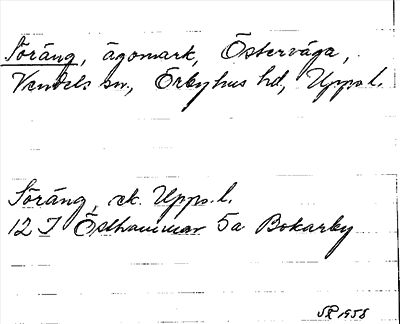 Söräng, ägomark, Östervåga,
Vendels sn, Örbyhus hd, Upps.l.
Söräng, ek. Upps.l.
12 I Östhammar 5a Bokarby
SR 1958